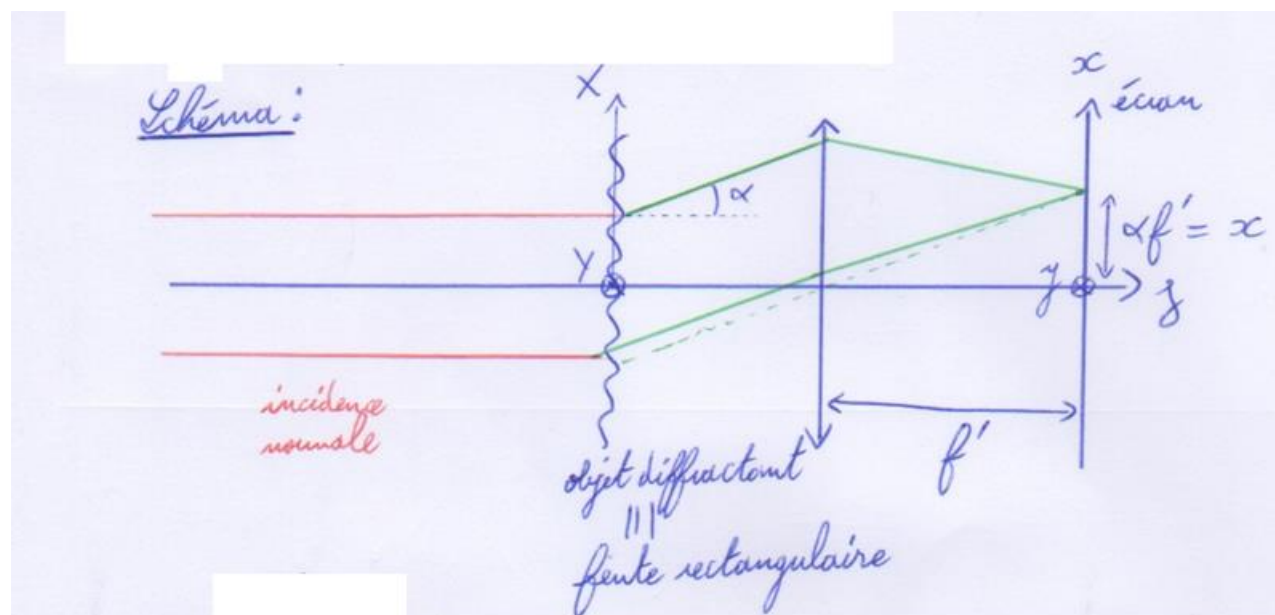 Schéma :
X
x
écran
α
αf' = x
Y
y
z
incidence
normale
f'
objet diffractant
fente rectangulaire